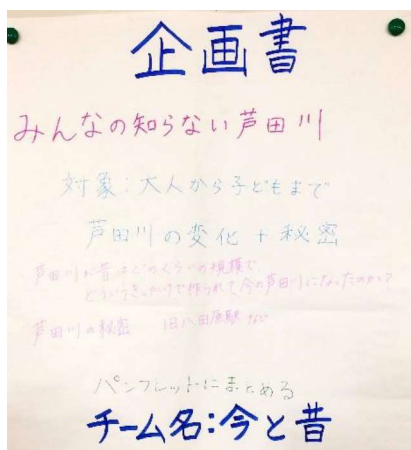 企画書
みんなの知らない芦田川
対象：大人から子どもまで
芦田川の変化＋秘密
芦田川が昔はどのくらいの規模で、
どういうきっかけで作られて今の芦田川になったのか？
芦田川の秘密 旧八田原駅など
パンフレットにまとめる
チーム名：今と昔